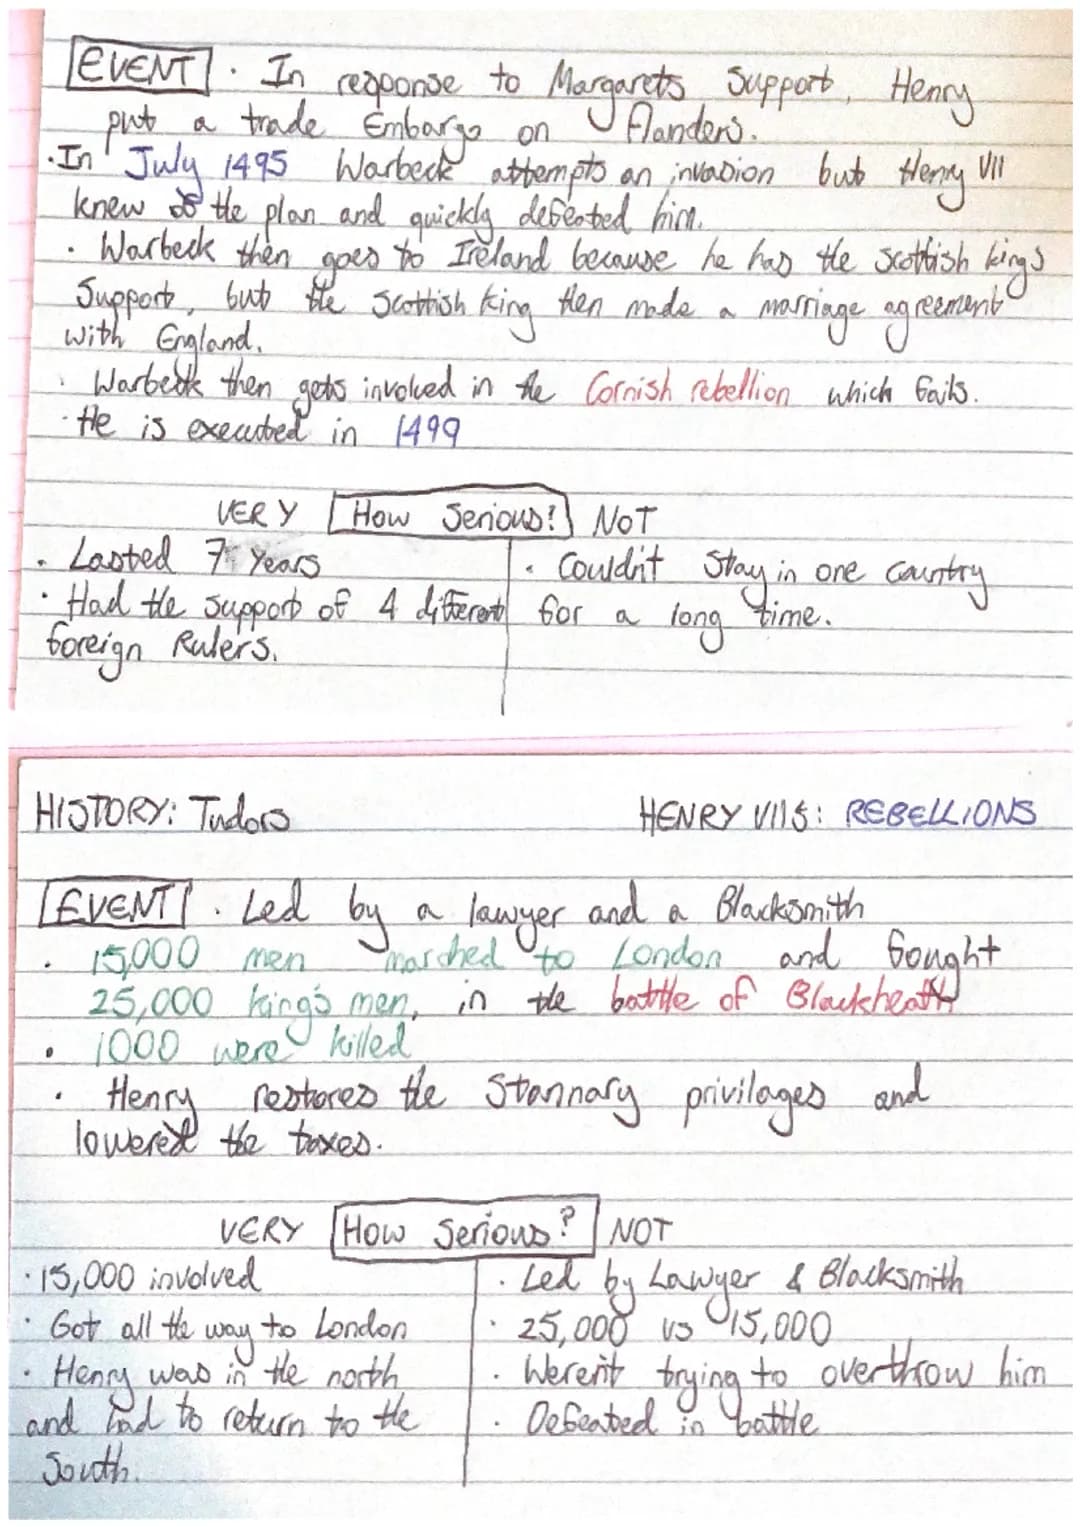 EVENT · In response to Margarets Support, Henry
put a trade Embargo on Flanders.
· In July 1495 Warbeck attempts an invasion but Henry VII
knew of the plan and quickly defeated him.
· Warbeck then goes to Ireland because he has the Scottish kings
Support, but the Scottish King then made a marriage agreement
with England.
· Warbeck then gets involved in the Cornish rebellion which fails.
· He is executed in 1499
VERY How Serious? NOT
· Lasted 7 Years
· Had the support of 4 different
foreign Rulers.
· Couldn't Stay in one Country
for a long time.
HISTORY: Tudors HENRY VIIS: REBELLIONS
EVENT · Led by a lawyer and a Blacksmith
· 15,000 men marched to London and fought
25,000 king's men, in the battle of Blackheath
· 1000 were killed
· Henry restores the Stannary privilages and
lowered the taxes.
VERY How Serious? NOT
· 15,000 involved
· Got all the way to London
· Henry was in the north
and had to return to the
South.
· Led by Lawyer & Blacksmith
· 25,000 vs 15,000
· Weren't trying to overthrow him
· Defeated in battle